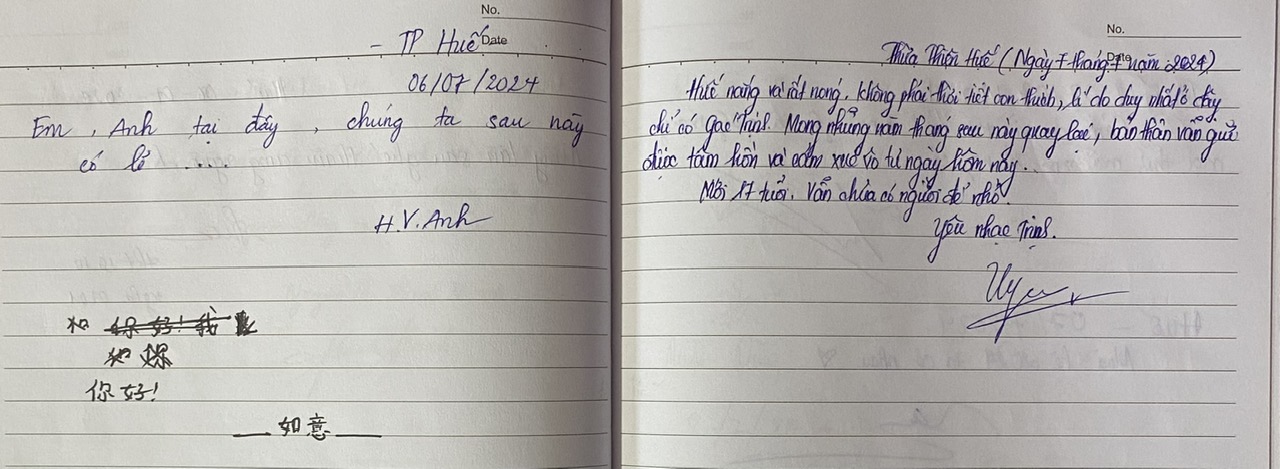 No.
Date
- TP Huế
06/07/2024
Em, Anh tại đấy, chúng ta sau này
có lẽ ....
H.V.Anh
你好!我
你好!
如意
No.
Date
Thừa Thiên Huế (Ngày 7 tháng 7 năm 2024)
Huế nắng và rất nóng, không phải thời tiết con thích, lí do duy nhất ở đây
chỉ có gác Trịnh. Mong những năm tháng sau này quay lại, bản thân vẫn giữ
được tâm hồn và cảm xúc vô tư ngày hôm nay..
Mới 17 tuổi. Vẫn chưa có người để nhớ.
Yêu nhạc Trịnh.